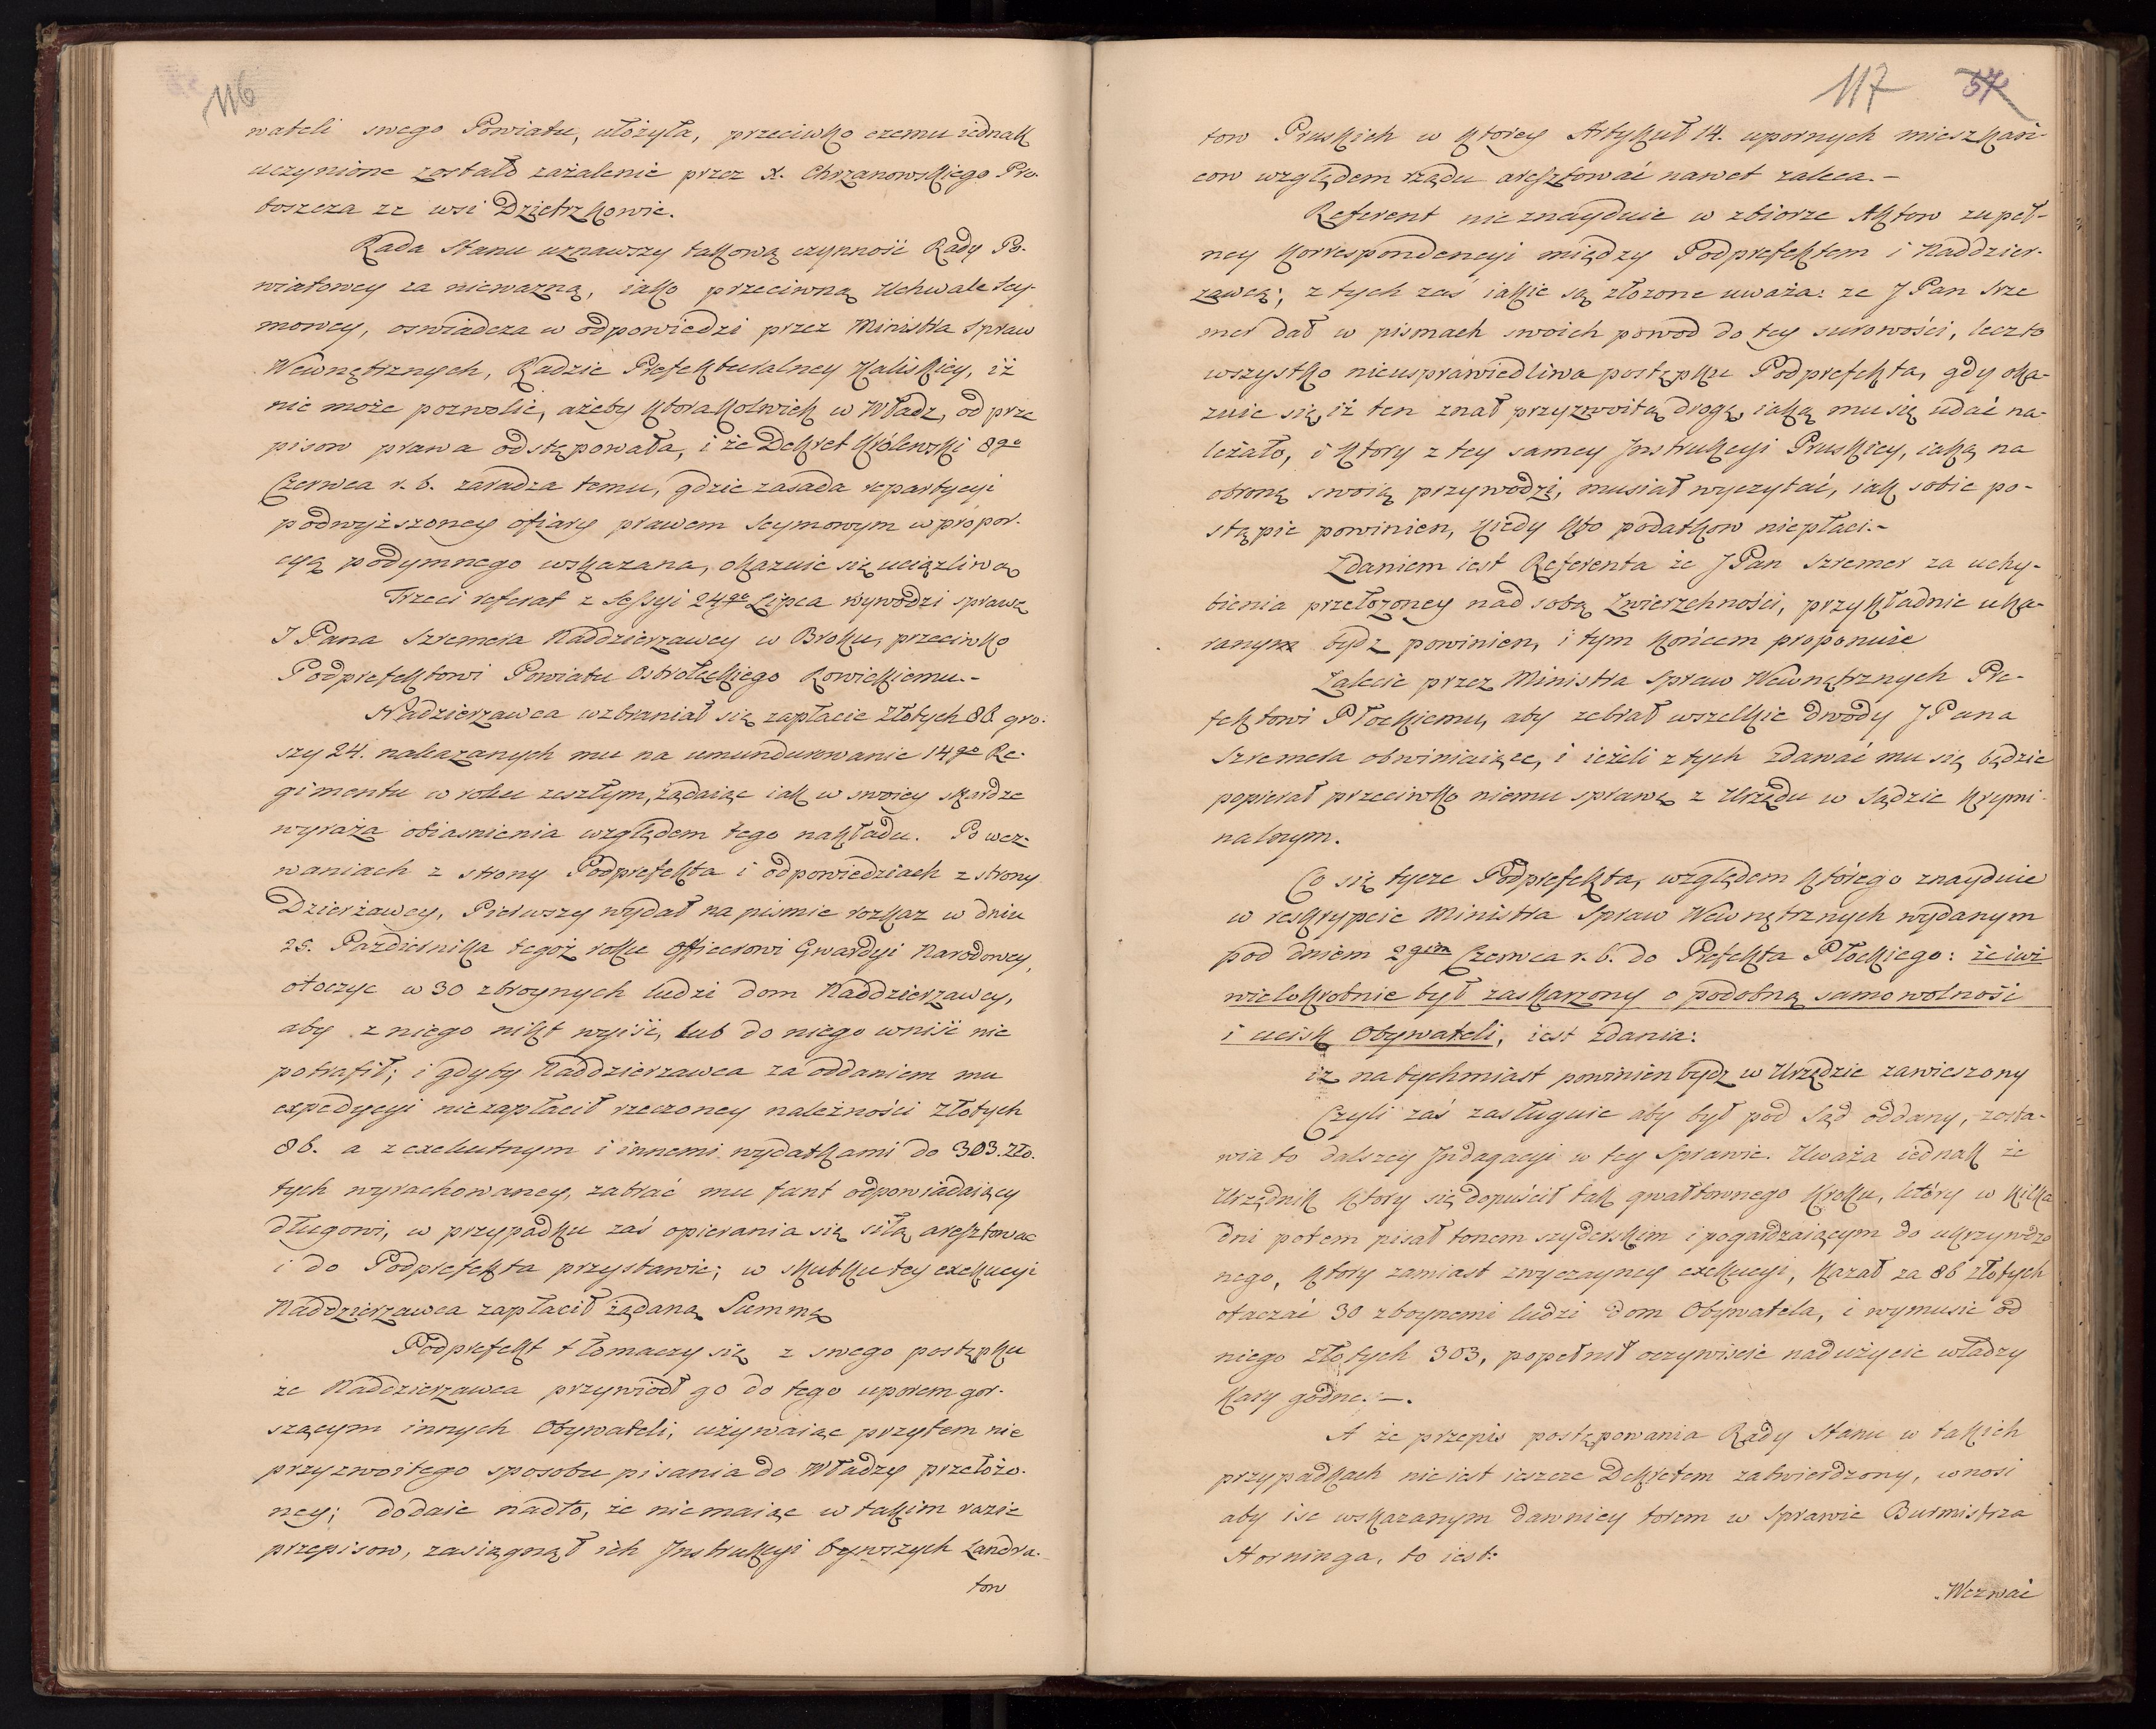 116
wateli swego Powiatu, ułożyła, przeciwko czemu iednak
uczynione zostało zażalenie przez X. Chrzanowskiego Pro-
boszcza ze wsi Dzietrzkowic.
Rada Stanu uznawszy takową czynność Rady Po-
wiatowey za nieważną, iako przeciwną Uchwale Sey-
mowey, oswiadcza w odpowiedzi przez Ministra Spraw
Wewnętrznych, Radzie Prefekturalney Kaliskiey, iż
nie może pozwolić, ażeby ktorakolwiek w Władz, od prze
pisow prawa odstępowała, i że Dekret Królewski 8go
Czerwca r. b. zaradza temu, gdzie zasada repartycyi
podwyższoney ofiary prawem Seymowym w propor-
cyą podymnego wskazana, okazuie się uciązliwą
Trzeci referat z Sessyi 24go Lipca wywodzi sprawę
J Pana Szremera Naddzierzawcy w Broku, przeciwko
Podprefektowi Powiatu Ostrołeckiego Rowickiemu.-
Naddzierzawca wzbraniał się zapłacic Złotych 86 gro-
szy 24. nakazanych mu na umundurowanie 14go Re-
gimentu w roku zeszłym, żądaiąc iak w swoiey skardze
wyraża obiasnienia względem tego nakładu. Po wez-
waniach z strony Podprefekta i odpowiedziach z strony
Dzierżawcy, Pierwszy wydał na pismie rozkaz w dniu
25. Pazdziernika tegoż roku Officerowi Gwardyi Narodowey,
otoczyc w 30 zbroynych ludzi dom Naddzierzawcy,
aby z niego nikt wyiść, lub do niego wniść nie
potrafił; i gdyby Naddzierzawca za oddaniem mu
expedycyi niezapłacił rzeczoney należności Złotych
86. a z exekutnym i innemi wydatkami do 303. Zło-
tych wyrachowaney, zabrać mu fant odpowiadaiący
długowi, w przypadku zaś opierania się siłą aresztowac
i do Podprefekta przystawic; w skutku tey exekucyi
Naddzierzawca zapłacił żądaną Summę
Podprefekt tłomaczy się z swego postępku
że Naddzierzawca przywiódł go do tego uporem gor-
szącym innych Obywateli, używaiąc przytem nie
przyzwoitego sposobu pisania do Władzy przełożo-
ney; dodaie nadto, że niemaiąc w takim razie
przepisow, zasiągnął ich Instrukcyi bywszych Landra-
tow
117 57
tow Pruskich w ktorey Artykuł 14. upornych mieszkań-
cow względem rządu aresztować nawet zaleca.-
Referent nie znayduie w zbiorze Aktow zupeł-
ney korrespondencyi między Podprefektem i Naddzier-
zawcą; z tych zaś iakie są złożone uważa: ze J Pan Szre
mer dał w pismach swoich powod do tey surowości, lecz to
wszystko nieusprawiedliwa postępku Podprefekta, gdy oka-
zuie się iż ten znał przyzwoitą drogę, iaką mu się udać na-
leżało, i ktory z tey samey Instrukcyi Pruskiey, iaką na
obronę swoią przywodzi, musiał wyczytać, iak sobie po-
stąpic powinien, kiedy kto podatkow niepłaci.-
Zdaniem iest Referenta że J Pan Szremer za uchy-
bienia przełożoney nad sobą Zwierzchności, przykładnie uka-
ranym bydz powinien, i tym końcem proponuie
Zalecic przez Ministra Spraw Wewnętrznych Pre-
fektowi Płockiemu, aby zebrał wszelkie dwody J Pana
Szremera obwiniaiące, i ieżeli z tych zdawać mu się będzie
popierał przeciwko niemu sprawę z Urzędu w Sądzie krymi-
nalnym.
Co się tycze Podprefekta, względem którego znayduie
w reskrypcie Ministra Spraw Wewnętrznych wydanym
pod dniem 2gim Czerwca r. b. do Prefekta Płockiego: że iuż
wielokrotnie był zaskarzony o podobną samowolność
i ucisk Obywateli, iest zdania:
iż natychmiast powinien bydz w Urzędzie zawieszony
Czyli zaś zasługuie aby był pod Sąd oddany, zosta-
wia to dalszey Indagacyi w tey Sprawie. Uważa iednak że
Urzędnik ktory się dopuścił tak gwałtownego kroku, który w kilka
dni potem pisał tonem szyderskim i pogardzaiącym do ukrzywdzo
nego, ktory zamiast zwyczayney exekucyi, kazał za 86 złotych
otaczać 30 zbroynemi ludzi dom Obywatela, i wymusic od
niego Złotych 303, popełnił oczywiscie nadużycie władzy
kary godne.-.
A że przepis postępowania Rady Stanu w takich
przypadkach nie iest ieszcze Dekretem zatwierdzony, wnosi
aby isc wskazanym dawniey torem w Sprawie Burmistrza
Horninga, to iest:
Wezwać